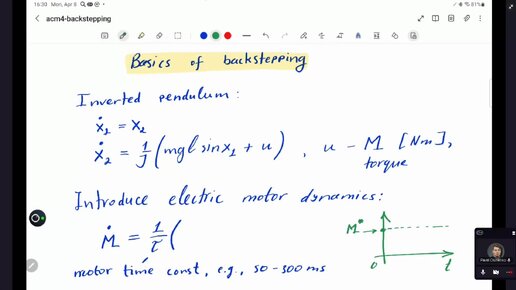 16:30 Mon, Apr 8
81%
acm4-backstepping
Basics of backstepping
Inverted pendulum:
ẋ₁ = x₂
ẋ₂ = 1/J (mgl sin x₁ + u) , u - M [Nm],
torque
Introduce electric motor dynamics:
Ṁ = 1/τ (
M*
0
t
motor time const, e.g., 50-500 ms